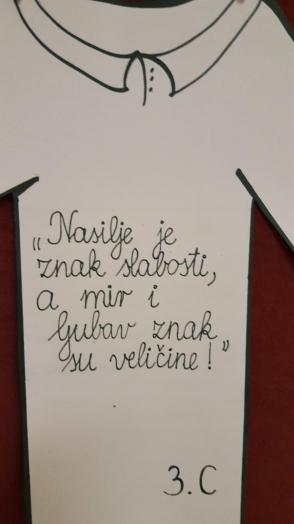 „Nasilje je
znak slabosti,
a mir i
ljubav znak
su veličine!”
3.C